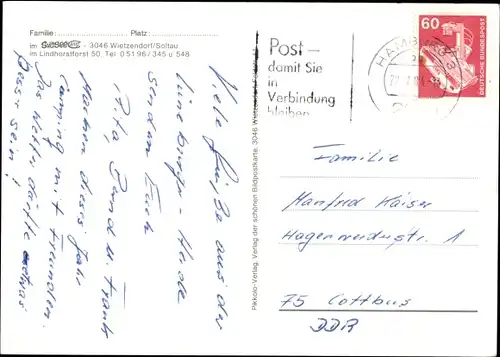 Familie: Platz:
im - 3046 Wietzendorf/Soltau
im Lindhorstforst 50, Tel. 0 51 96 / 345 u 548
Viele Grüße aus der
Lüneburger - Heide
senden Euch
Rita, Bernd u. Frank
Machen dieses Jahr
Camping mit Freunden.
Das Wetter dürfte etwas
Besser sein!
Pikkolo-Verlag, Verlag der schönen Bildpostkarte, 3046 Wietzendorf
Post –
damit Sie
in
Verbindung
bleiben
HAMBURG
60
DEUTSCHE BUNDESPOST
Familie
Manfred Kaiser
1
75 Cottbus
DDR